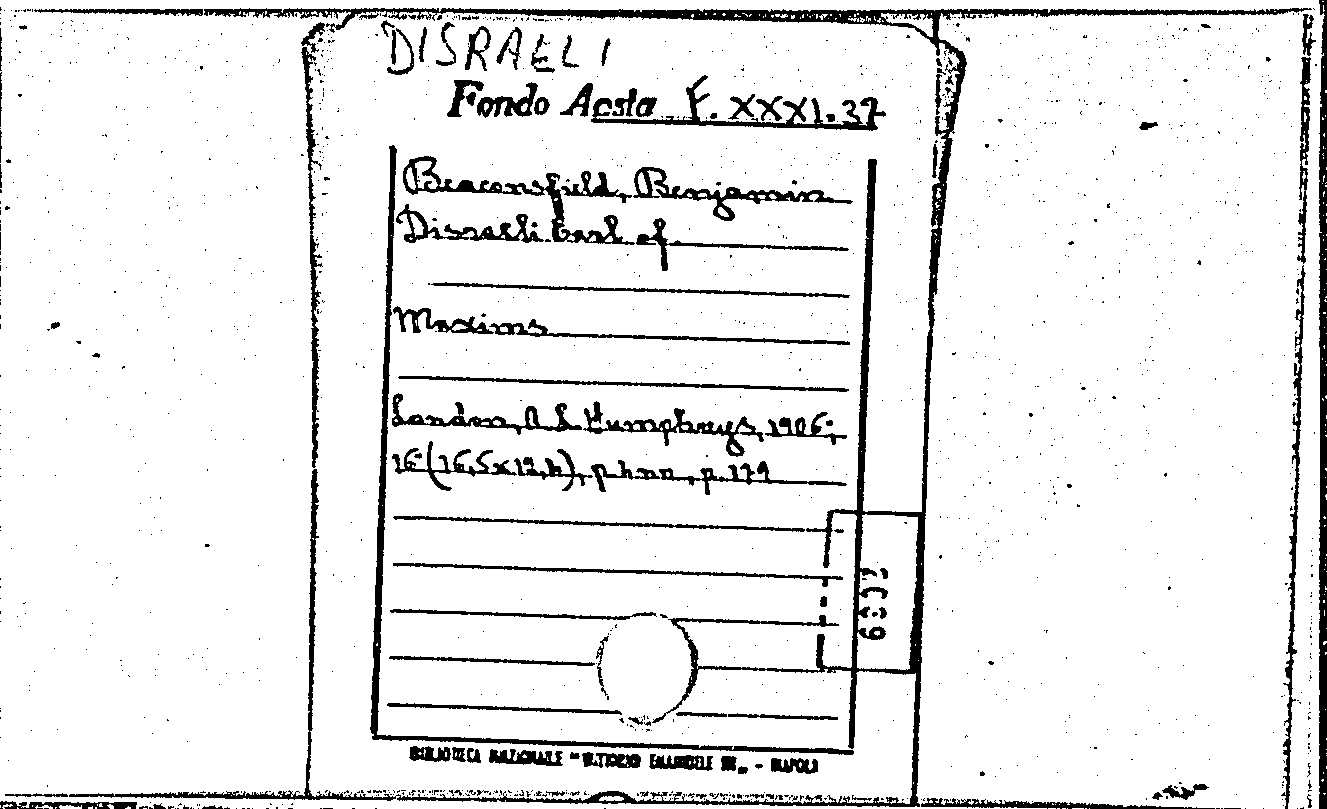 DISRAELI
Fondo Aosta F. XXXI. 37
Beaconsfield, Benjamin
Disraeli Earl of
Maxims
London, A L Humphreys, 1906;
16° (16,5x12,
p. 179
BIBLIOTECA NAZIONALE "VITTORIO EMANUELE III„ - NAPOLI